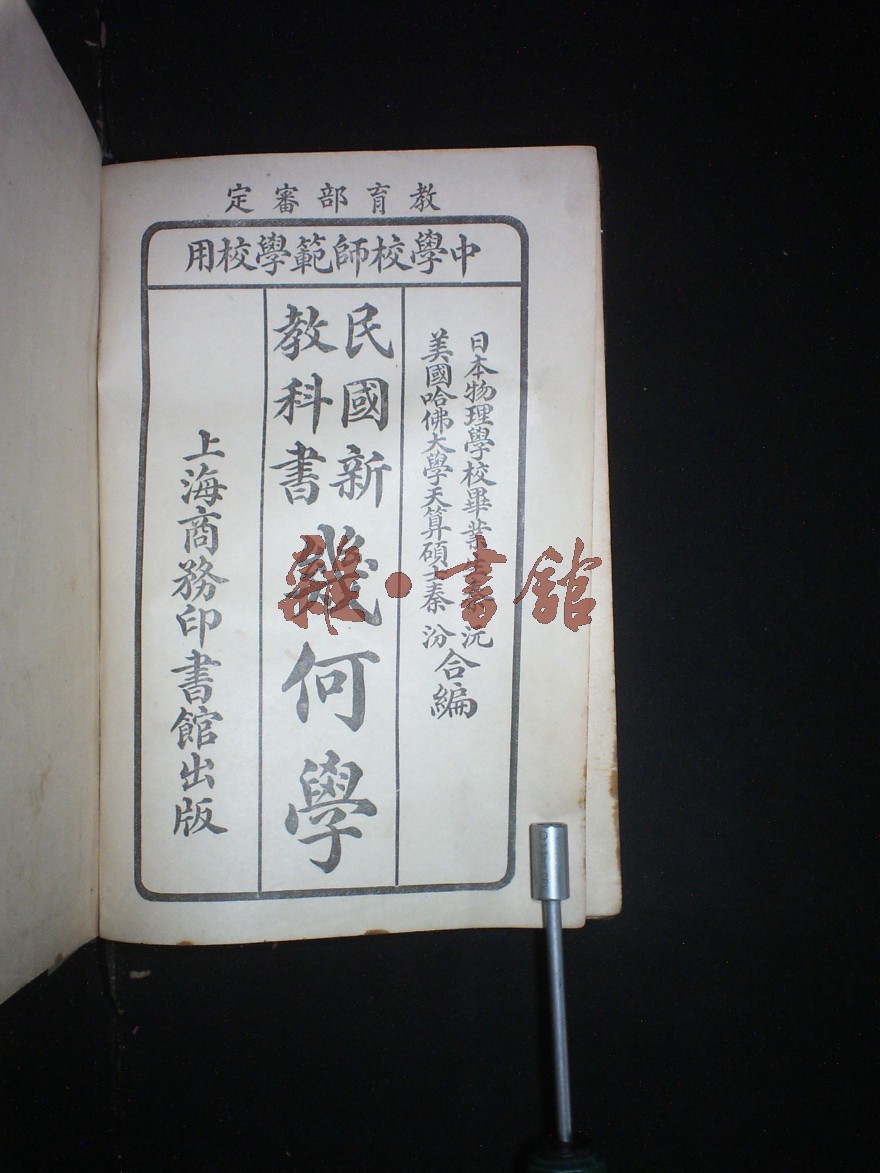 教育部審定
中學校師範學校用
日本物理學校畢業秦沅
美國哈佛大學天算碩士秦汾
合編
民國新
教科書
幾何學
上海商務印書館出版
雜·書館